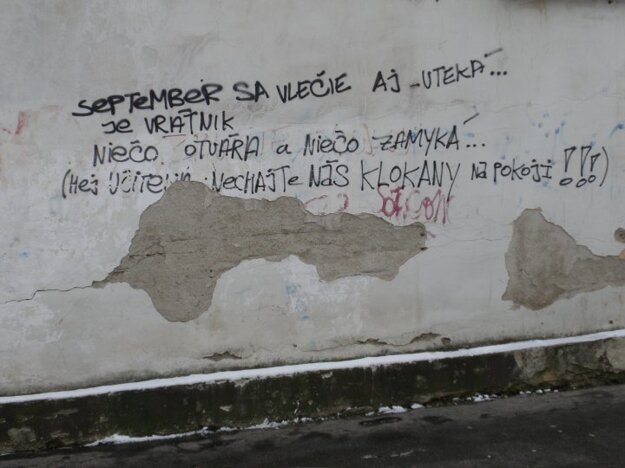 SEPTEMBER SA VLEČIE AJ UTEKÁ...
JE VRÁTNIK
NIEČO OTVÁRA a NIEČO ZAMYKÁ...
(HEJ UČITELIA NECHAJTE NÁS KLOKANY NA POKOJI!!!)